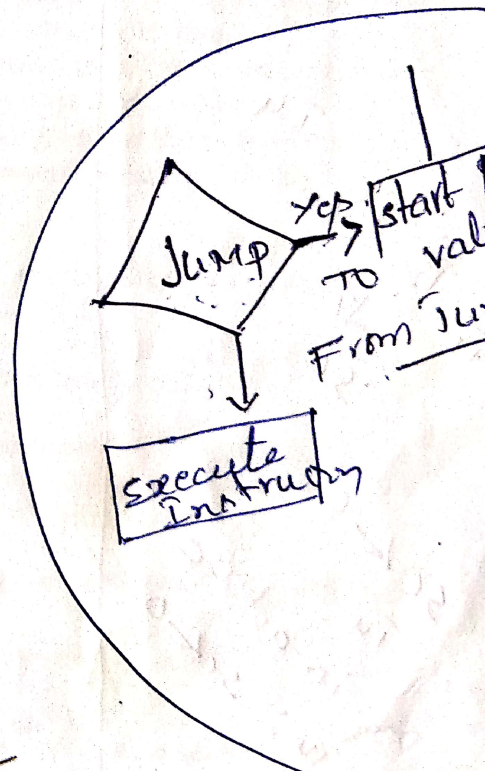 Jump
yep
start
TO val
From Ju
Execute
Instruction